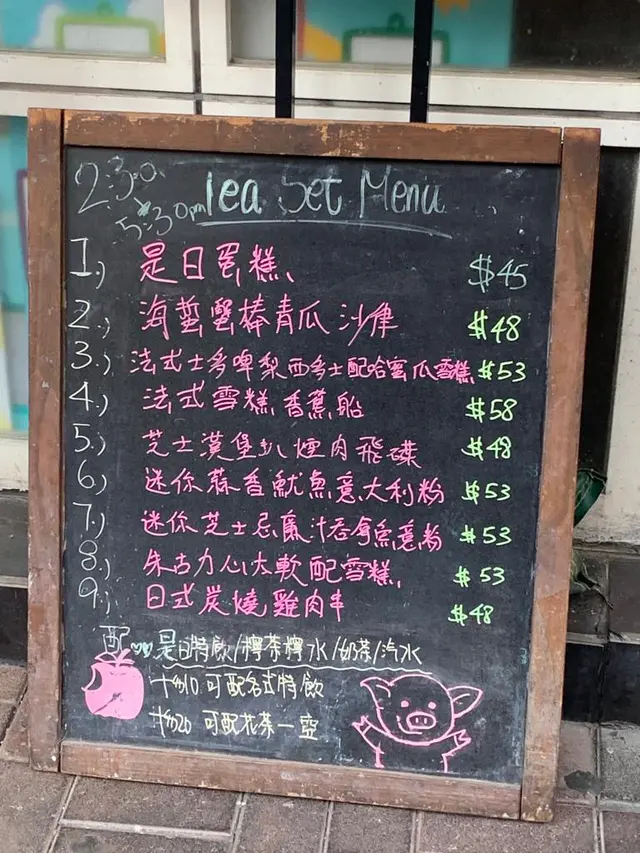 2:30
5:30pm Tea Set Menu
1.) 是日蛋糕 $45
2.) 海蜇蟹棒青瓜沙律 $48
3.) 法式士多啤梨西多士配哈蜜瓜雪糕 $53
4.) 法式雪糕香蕉船 $58
5.) 芝士漢堡扒煙肉飛碟 $48
6.) 迷你蒜香魷魚意大利粉 $53
7.) 迷你芝士忌廉汁吞拿魚意粉 $53
8.) 朱古力心太軟配雪糕 $53
9.) 日式炭燒雞肉串 $48
配 是日特飲/檸茶檸水/奶茶/汽水
+$10 可配各式特飲
+$20 可配花茶一壺